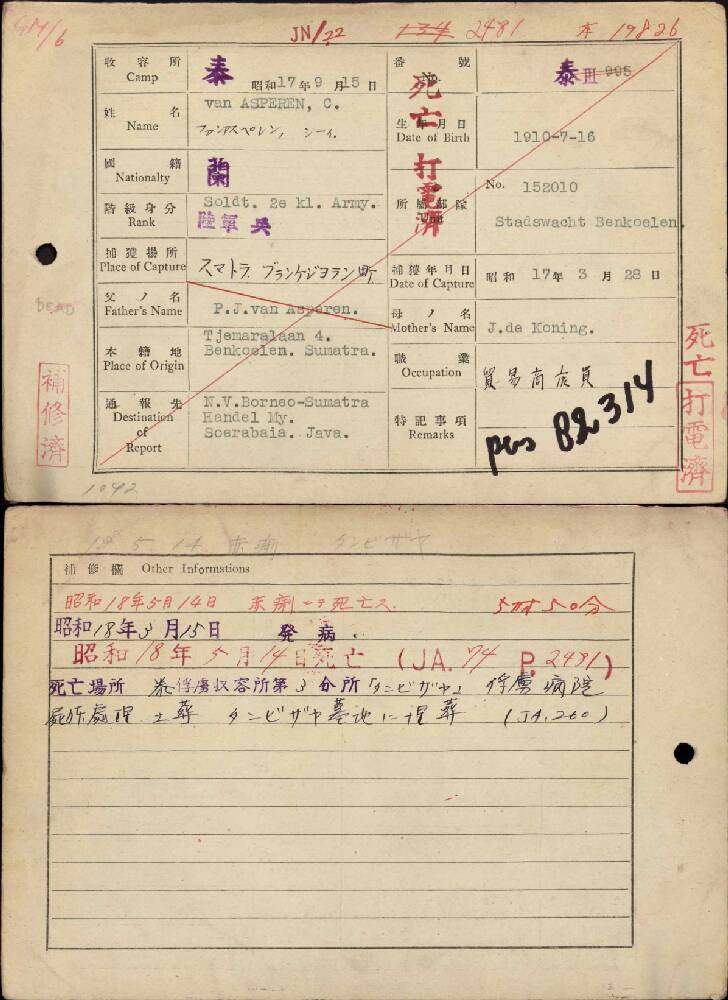 GM/6
JN/22 134 2481 本 19826
收容所 Camp 泰 昭和17年9月15日
番號 No. 泰III 995
姓名 Name van ASPEREN, C.
ファンアスペレン, シーイ.
生年月日 Date of Birth 1910-7-16
國籍 Nationalty 蘭
階級身分 Rank Soldt. 2e kl. Army.
陸軍 兵
所屬部隊 Unit No. 152010
Stadswacht Benkoelen.
捕獲場所 Place of Capture スマトラ. ブランケジヨラン町
捕獲年月日 Date of Capture 昭和 17年 3月 28日
父ノ名 Father's Name P.J.van Asperen.
母ノ名 Mother's Name J.de Koning.
本籍地 Place of Origin Tjemaralaan 4.
Benkoelen. Sumatra.
職業 Occupation 貿易商店員
通報先 Destination of Report N.V.Borneo-Sumatra
Handel My.
Soerabaia. Java.
特記事項 Remarks pus 82314
死亡打電濟
DEAD
補修濟
死亡打電濟
1042
18 5. 14 赤痢 タンビザヤ
補修欄 Other Informations
昭和18年5月14日 赤痢ニテ死亡ス. 5時50分
昭和18年3月15日 発病.
昭和18年5月14日死亡 (JA. 74 P. 2481)
死亡場所 泰俘虜収容所第3分所「タンビザヤ」俘虜病院
屍体處理 土葬 タンビザヤ墓地に埋葬 (JA.260)